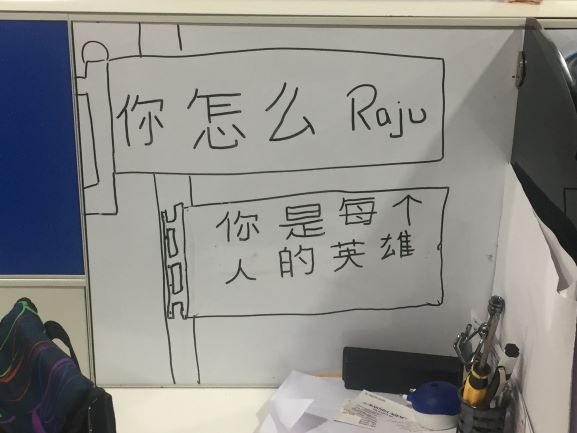 你怎么 Raju
你是每个
人的英雄